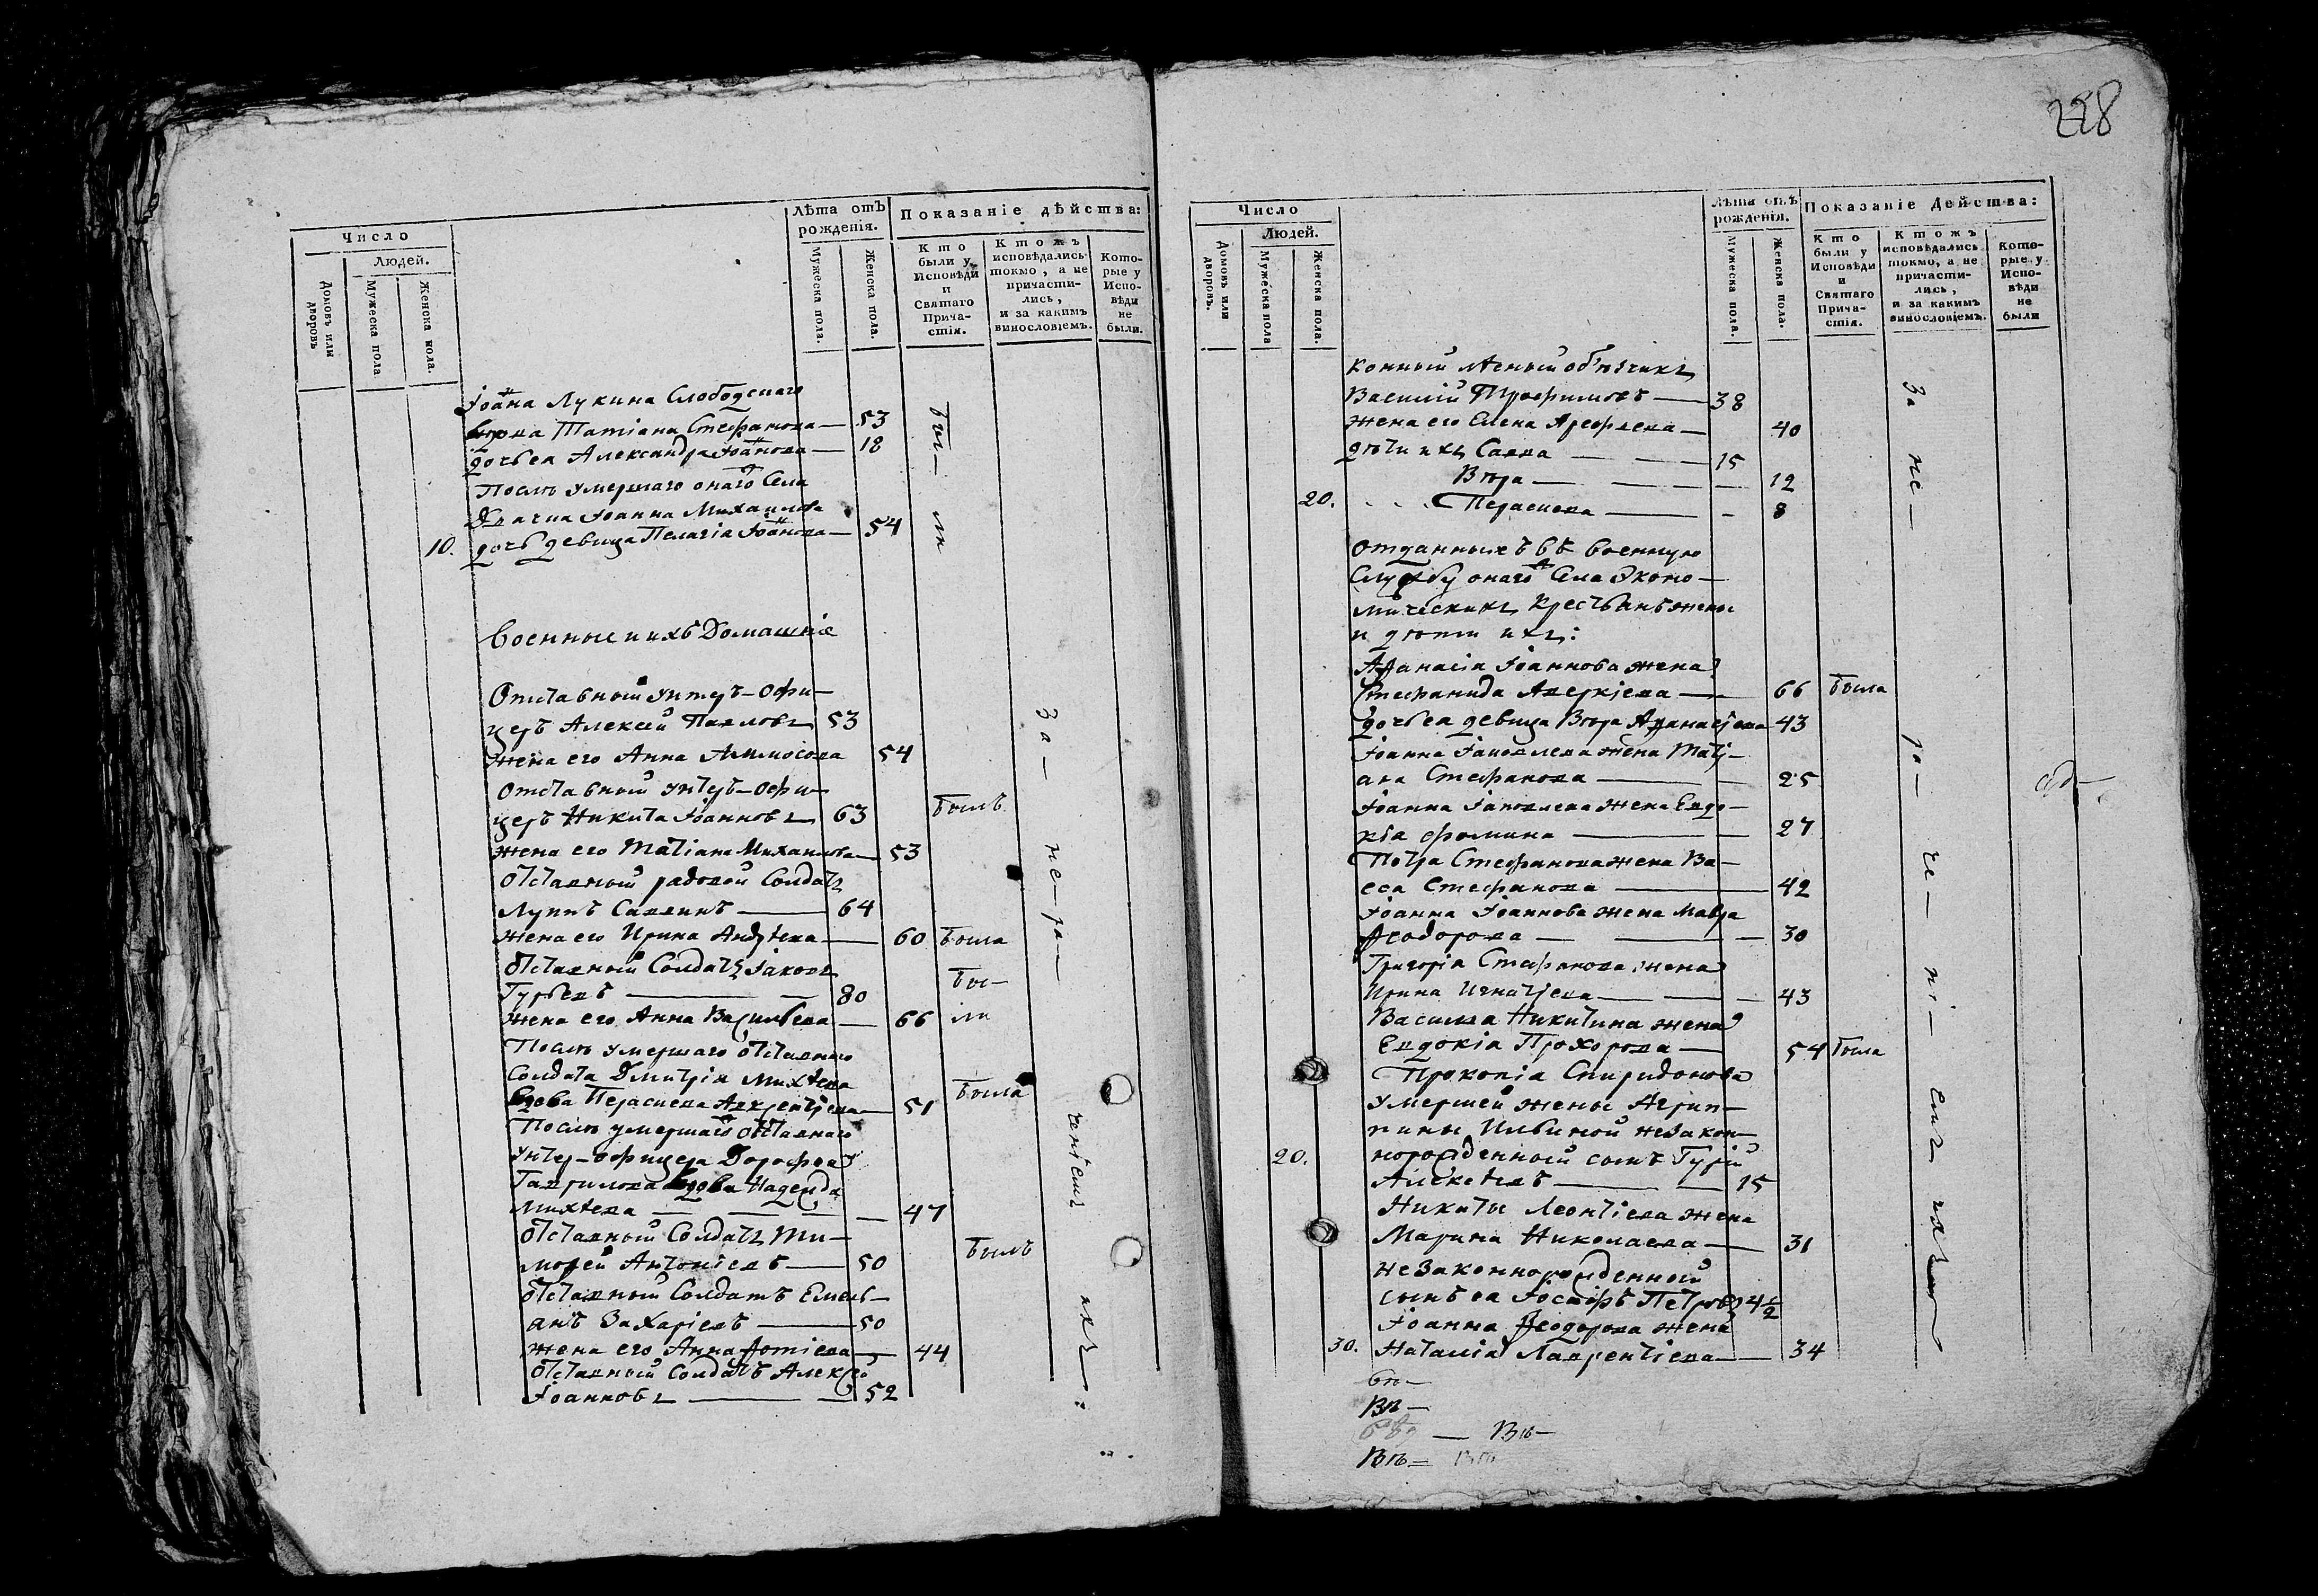 228
Число
Людей.
Домовъ или дворовъ
Мужеска пола
Женска пола.
Лѣта отъ рожденія.
Мужеска пола.
Женска пола.
Показаніе дѣйства:
Кто были у Исповѣди и Святаго Прича-стія.
Ктожъ исповѣдались токмо, а не причасти-лись, и за какимъ винословіемъ.
Кото-рые у Испо-вѣди не были.
Іоанна Лукина Слободскаго
вдова Татіана Стефанова — 53
дочь ея Александра Іоаннова — 18
были
Послѣ умершаго онаго Села
Іоанна Михаилова
10. дочь девица Пелагія Іоаннова — 54
Военные и ихъ Домашніе
Отставный унтеръ-офи-
церъ Алексѣй Павловъ 53
жена его Анна 54
Отставный унтеръ-офи-
церъ Никита Іоанновъ 63 былъ
жена его Татіана Михаилова — 53
Отставный рядовой Солдатъ
Лупъ Саввинъ — 64
жена его Ирина Андрѣева — 60 была
Отставный Солдатъ Іаковъ
Гурьевъ — 80 бы-
жена его Анна Васильева — 66 ли
Послѣ умершаго отставнаго
Солдата Димитрія Михѣева
вдова Параскева Лаврентіева — 51 была
Послѣ умершаго отставнаго
Унтер-офицера Дорофеа
Гаврилова вдова Надежда
Михѣева — 47
Отставный Солдатъ Ти-
мофей Антоніевъ — 50 былъ
Отставный Солдатъ Емель-
анъ Захаріевъ — 50
жена его Анна Фотіева — 44
Отставный Солдатъ Алексѣй
Іоанновъ — 52
За не ра- ченіемъ ихъ
Число
Людей.
Домовъ или дворовъ.
Мужеска пола
Женска пола.
Лѣта отъ рожденія.
Мужеска пола.
Женска пола.
Показаніе Действа:
Кто были у Исповѣди и Святаго Прича-стія.
Ктожъ исповѣдались токмо, а не причасти-лись, и за какимъ винословіемъ.
Кото-рые у Испо-вѣди не были
Конный лѣсный объѣзчикъ
Василій Трофимовъ — 38
жена его Елена Арефьева — 40
дѣти ихъ Савва — 15
Вѣра — 12
20. Параскева — 8
Отданныхъ въ военную
Службу онаго Села Эконо-
мическихъ Крестьянъ жены
и дѣти ихъ:
Афанасія Іоаннова жена
Стефанида Аверкіева — 66 была
дочь ея девица Вѣра Афанасіева 43
Іоанна Іаковлева жена Таті-
ана Стефанова — 25
Іоанна Іаковлева жена Евдо-
кіа Фомина — 27
Петра Стефанова жена Ва-
сса Стефанова — 42
Іоанна Іоаннова жена Мавра
Феодорова — 30
Григорія Стефанова жена
Ирина Игнатіева — 43
Василья Никитина жена
Евдокіа Прохорова — 54 была
Прокопіа Спиридонова
умершей жены Агрип-
пины Ильиной незакон-
20. норожденный сынъ Гурій
Алексѣевъ — 15
Никиты Леонтіева жена
Марина Николаева — 31
незаконнорожденный
сынъ ея Іосифъ Петровъ 4½
Іоанна Феодорова жена
30. Наталіа Лаврентіева — 34
За не- ра- че- ні- емъ ихъ